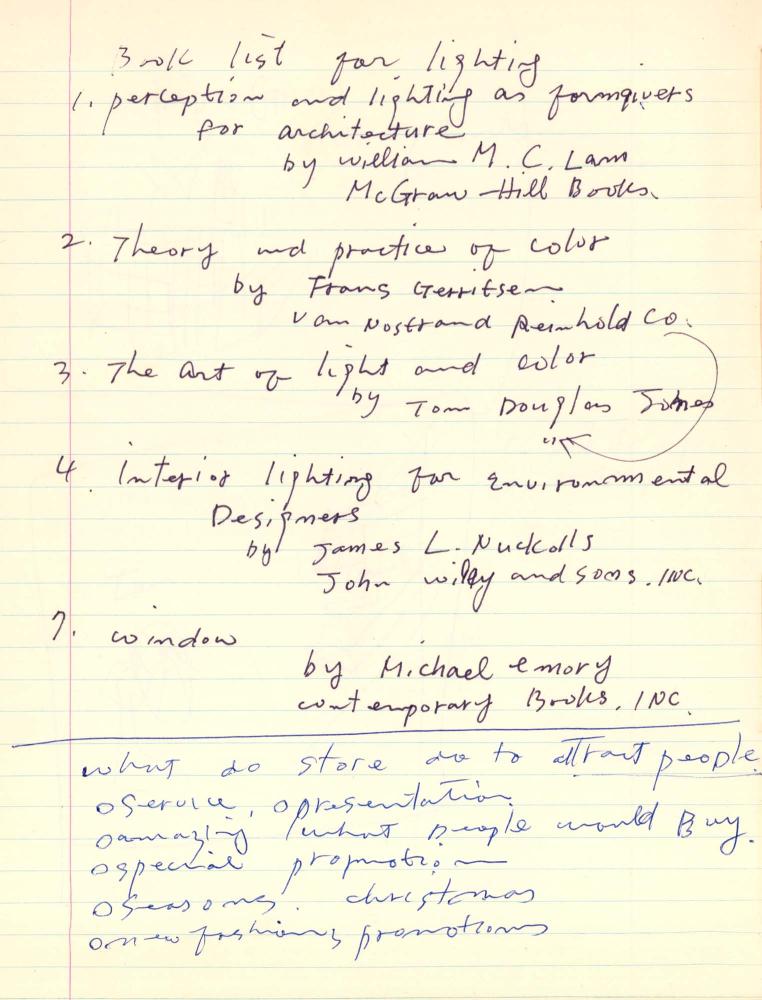 Book list for lighting
1. perception and lighting as formgivers
for architecture
by william M. C. Lam
McGraw-Hill Books.
2. Theory and practice of color
by Frans Gerritsen
Van Nostrand Reinhold Co.
3. The art of light and color
by Tom Douglas Jones
"
4. Interior lighting for Environmental
Designers
by James L. Nuckolls
John wiley and sons. INC.
7. window
by Michael emory
contemporary Books. INC.
what do store do to attract people.
o service, o presentation
o amazing / what people would Buy.
o special promotion
o seasons. christmas
o new fashions promotions